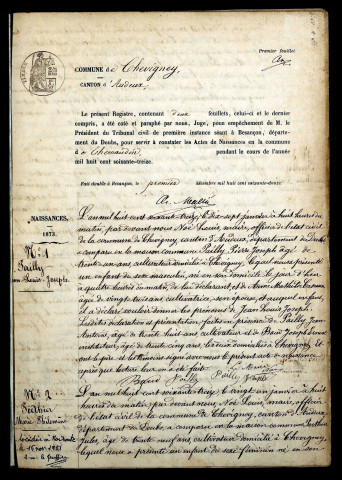 Premier feuillet
COMMUNE de Chevigney,
CANTON d'Audeux
Le présent Registre, contenant deux feuillets, celui-ci et le dernier
compris, a été coté et paraphé par nous, Juge, pour empêchement de M. le
Président du Tribunal civil de première instance séant à Besançon, départe-
ment du Doubs, pour servir à constater les Actes de Naissances en la commune
de Chevigney pendant le cours de l'année
mil huit cent soixante-treize.
Fait double à Besançon, le premier décembre mil huit cent soixante-douze.
NAISSANCES,
1873
N° 1
Pailly
Jean Louis Joseph.
L'an mil huit cent soixante treize, le dix-sept janvier à huit heures du
matin, par devant nous Noë Louis, maire, officier de l'état civil
de la commune de Chevigney, canton d'Audeux, département du Doubs
a comparu en la maison commune Pailly Pierre Joseph âgé de
trente-un ans cultivateur domicilié à Chevigney, lequel nous a présenté
un enfant du sexe masculin, né en son domicile le jour d'hier
à quatre heures du matin, de lui déclarant, et de Anne Mathilde
âgée de vingt-trois ans cultivatrice, son épouse, et auquel enfant
il a déclaré vouloir donner les prénoms de Jean Louis Joseph.
Lesdites déclaration et présentation faites en présence de Pailly Jean
Antoine, âgé de trente huit ans cultivateur et de
instituteur, âgé de trente cinq ans, tous deux domiciliés à Chevigney
et ont le père et les témoins signé avec nous le présent acte de naissance
après que lecture leur en a été faite.
N° 2
Marie Philomène
L'an mil huit cent soixante treize, le vingt un janvier à huit
heures du matin, par devant nous Noë Louis, maire, officier
de l'état civil de la commune de Chevigney, canton d'Audeux,
département du Doubs, a comparu en la maison commune
Jules, âgé de trente neuf ans, cultivateur domicilié à Chevigney,
lequel nous a présenté un enfant du sexe féminin né en son